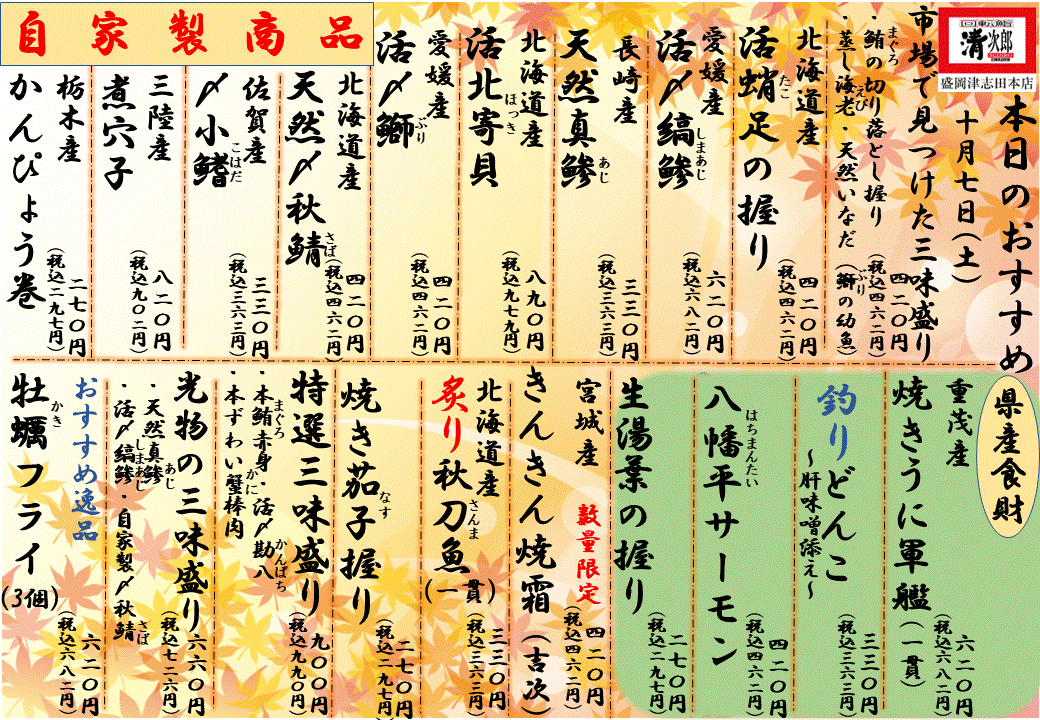 回転鮨
清次郎
盛岡津志田本店
本日のおすすめ
十月七日(土)
市場で見つけた三味盛り
・鮪の切り落とし握り
まぐろ
・蒸し海老・天然いなだ(鰤の幼魚)
えび
ぶり
四二〇円
(税込四六二円)
北海道産
活蛸足の握り
たこ
四二〇円
(税込四六二円)
愛媛産
活〆縞鰺
しまあじ
六二〇円
(税込六八二円)
長崎産
天然真鰺
あじ
三三〇円
(税込三六三円)
北海道産
活北寄貝
ほっき
八九〇円
(税込九七九円)
愛媛産
活〆鰤
ぶり
四二〇円
(税込四六二円)
自家製商品
北海道産
天然〆秋鯖
さば
四二〇円
(税込四六二円)
佐賀産
〆小鰭
こはだ
三三〇円
(税込三六三円)
三陸産
煮穴子
八二〇円
(税込九〇二円)
栃木産
かんぴょう巻
二七〇円
(税込二九七円)
県産食財
重茂産
焼きうに軍艦(一貫)
六二〇円
(税込六八二円)
釣りどんこ
~肝味噌添え~
三三〇円
(税込三六三円)
八幡平サーモン
はちまんたい
四二〇円
(税込四六二円)
生湯葉の握り
二七〇円
(税込二九七円)
宮城産
数量限定
きんきん焼霜(吉次)
四二〇円
(税込四六二円)
北海道産
炙り秋刀魚(一貫)
さんま
三三〇円
(税込三六三円)
焼き茄子握り
なす
二七〇円
(税込二九七円)
特選三味盛り
・本鮪赤身・活〆勘八
まぐろ
かんぱち
・本ずわい蟹棒肉
かに
九〇〇円
(税込九九〇円)
光物の三味盛り
・天然真鰺
あじ
・活〆縞鰺・自家製〆秋鯖
しまあじ
さば
六六〇円
(税込七二六円)
おすすめ逸品
牡蠣フライ(3個)
かき
六二〇円
(税込六八二円)